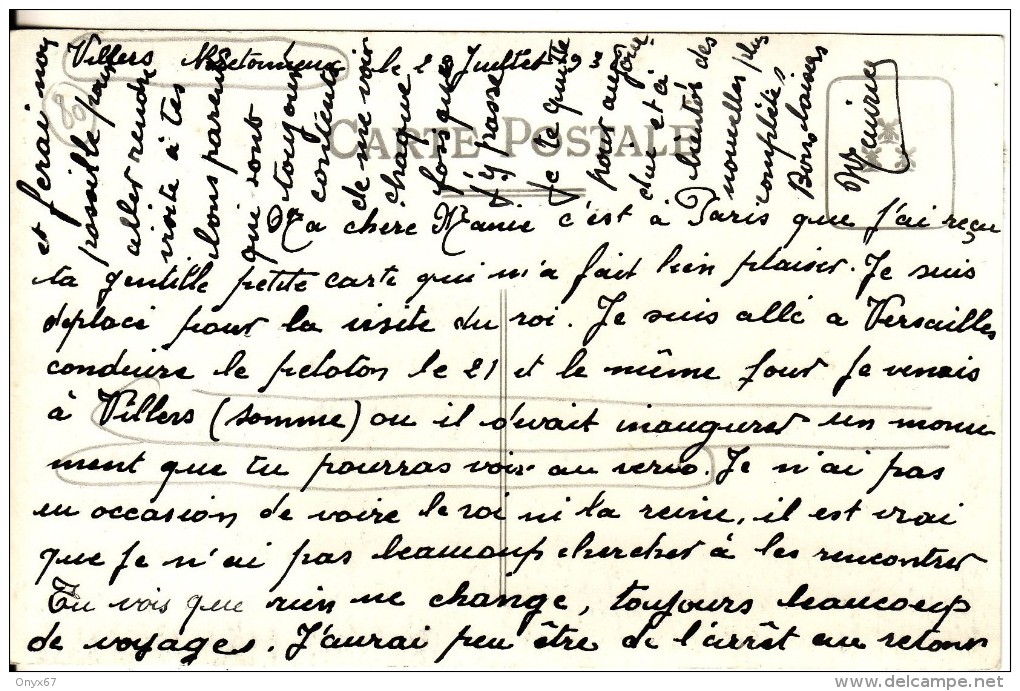 Villers Bretonneux le 2 Juillet 93
CARTE POSTALE
Ma chere Mamie c'est à Paris que J'ai reçu
ta gentille petite carte qui m'a fait bien plaisir. Je suis
deplacé pour la visite du roi. Je suis allé a Versailles
conduire le peloton le 21 et le même jour Je venais
à Villers (somme) ou il devait inaugurer un monu
ment que tu pourras voir au verso. Je n'ai pas
eu occasion de voire le roi ni la reine, il est vrai
que Je n'ai pas beaucoup chercher à les rencontrer
Tu vois que rien ne change, toujours beaucoup
de voyages. J'aurai peu être de l'arrêt au retour
et ferai mon
possible pour
aller rendre
visite à tes
bons parents
qui sont
toujours
contents
de me voir
chaque
fois que
J'y passe
Je te quitte
pour aujour
dui et à
bientôt des
nouvelles plus
complètes
Bons baisers
Maurice
80
©Onyx67
www.delcampe.net